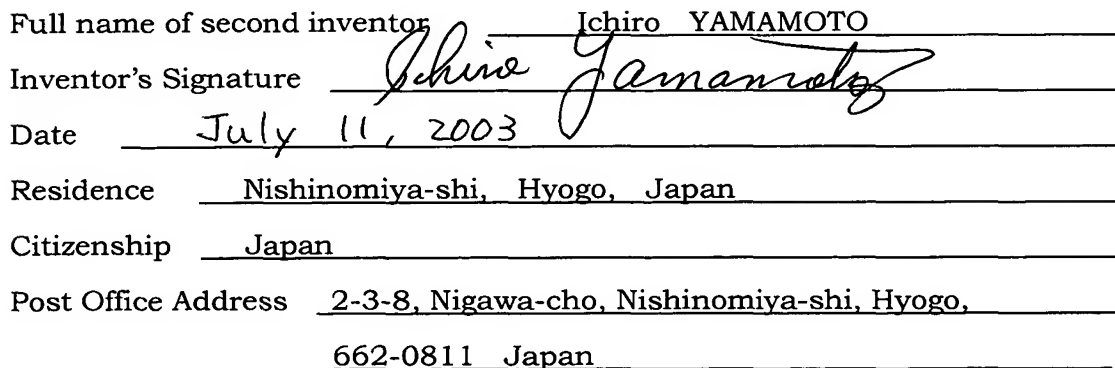 Full name of second inventor Ichiro YAMAMOTO
Inventor's Signature Ichiro Yamamoto
Date July 11, 2003
Residence Nishinomiya-shi, Hyogo, Japan
Citizenship Japan
Post Office Address 2-3-8, Nigawa-cho, Nishinomiya-shi, Hyogo,
662-0811 Japan